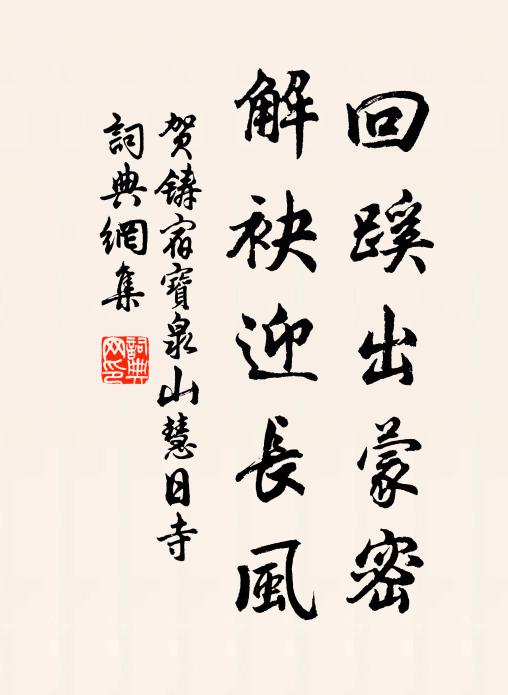 回蹊出蒙密
解袂迎長風
賀鑄宿寶泉山慧日寺
詞典網集
詞典
网印